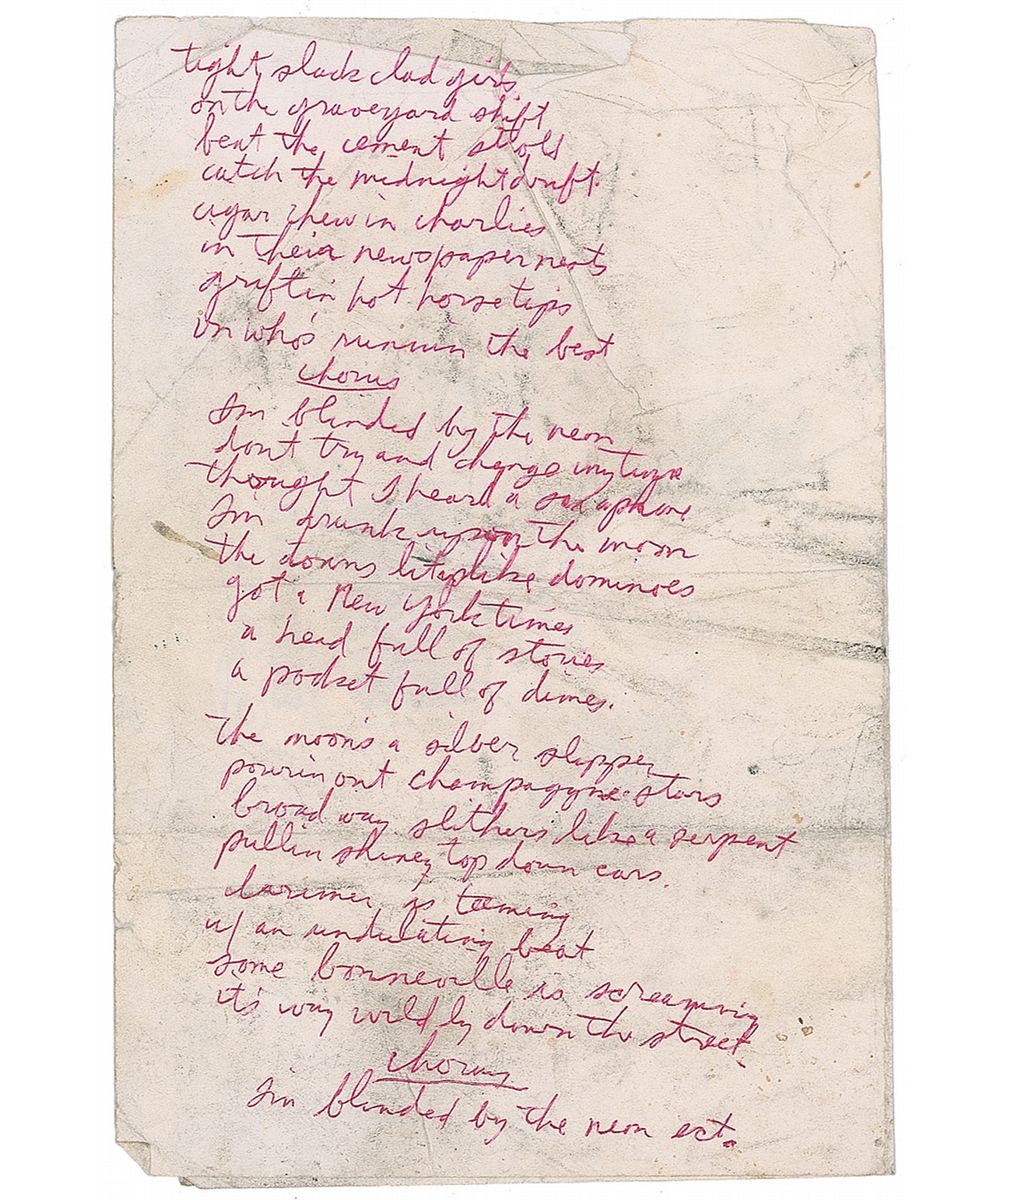 tight slack clad girls
on the graveyard shift
beat the cement stols
catch the midnight drift
cigar chewin charlies
in their newspaper nests
griftin hot horse tips
on who's runnin the best
chorus
Im blinded by the neon
dont try and change my tune
thought I heard a saxaphone
Im drunk upon the moon
the downs like dominoes
got a New York times
a head full of stories
a pocket full of dimes.
the moons a silver slipper
pourin out champagyne stars
broad way slithers like a serpent
pullin shiney top down cars.
larimer is teeming
w/ an undulating beat
some bonneville is screaming
it's way wild ly down the street.
chorus
Im blinded by the neon ect.